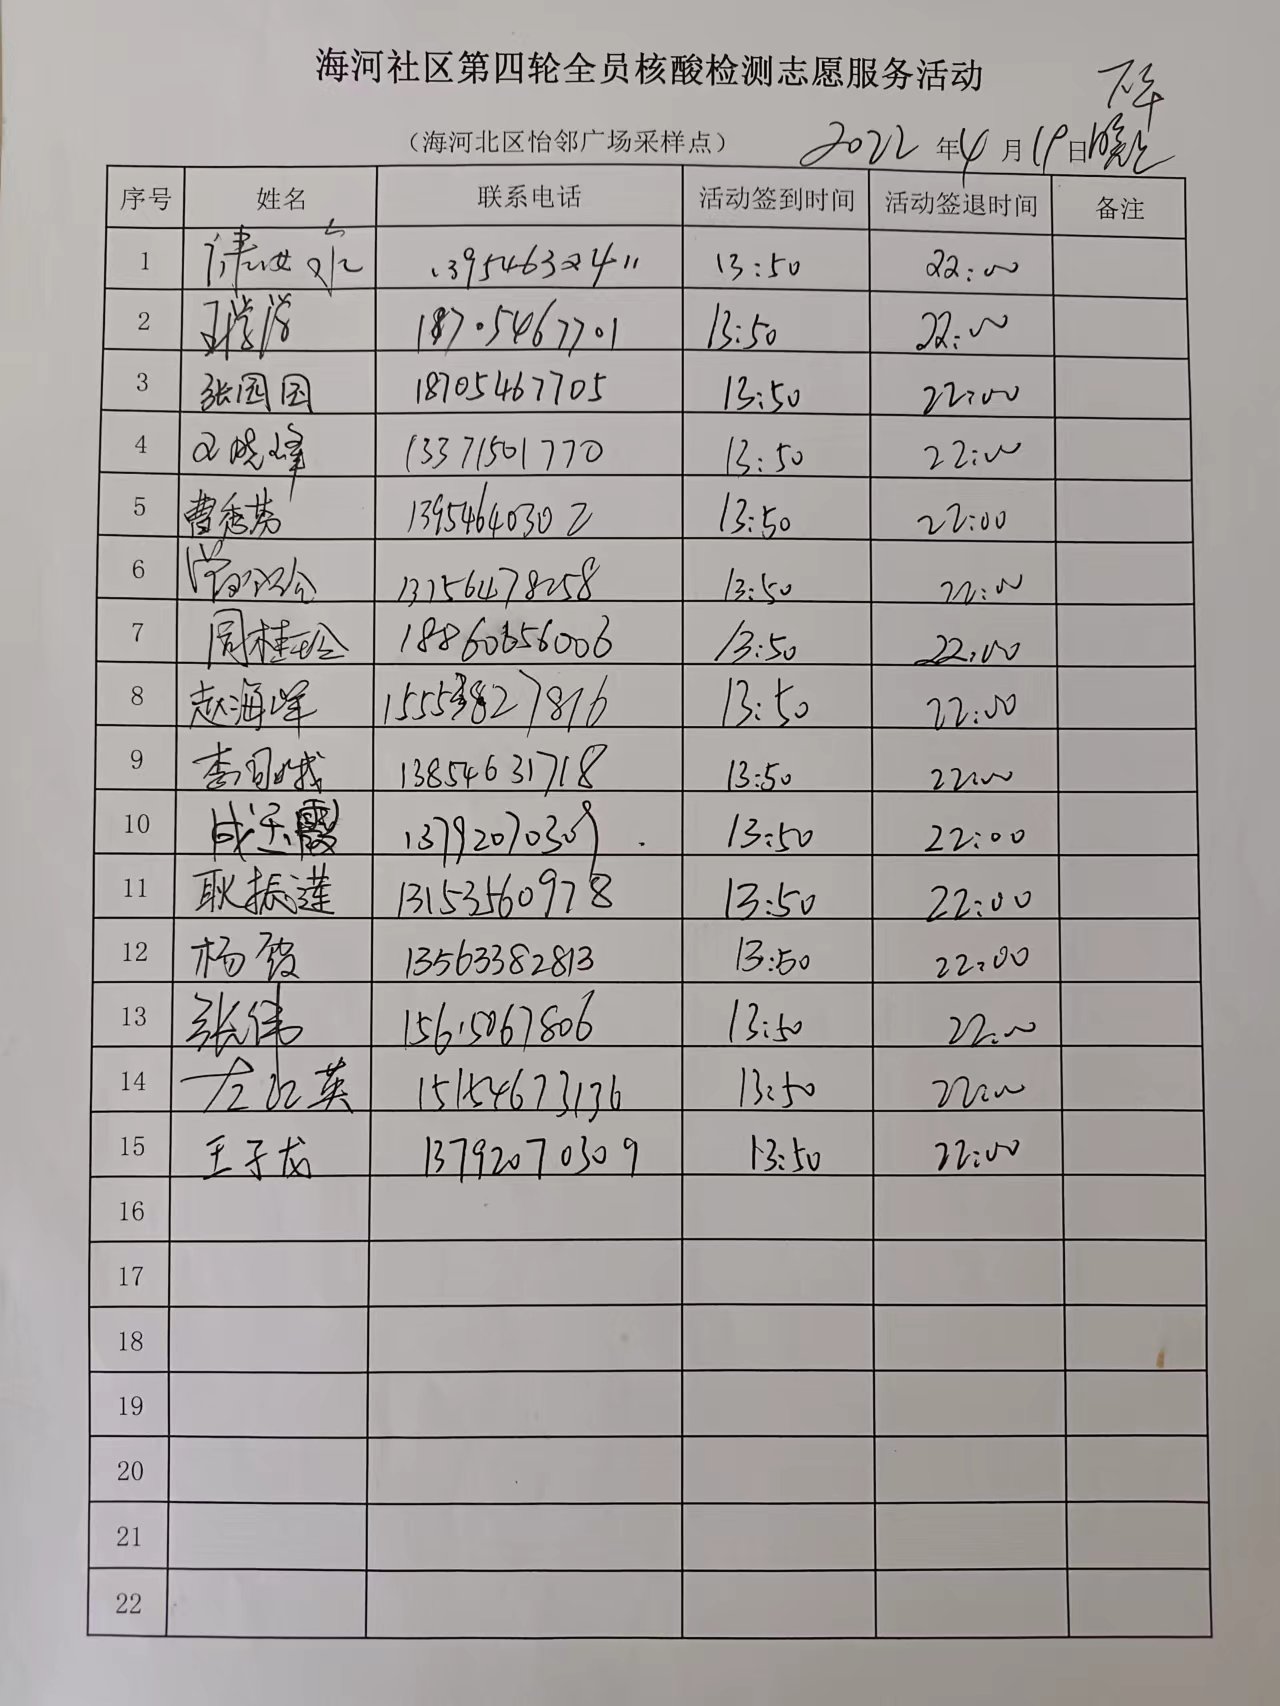 海河社区第四轮全员核酸检测志愿服务活动
下午
（海河北区怡邻广场采样点） 2022 年 4 月 19 日 晚上
序号 姓名 联系电话 活动签到时间 活动签退时间 备注
1 13:50 22:00
2 18705467701 13:50 22:00
3 张园园 18705467705 13:50 22:00
4 晓峰 13371501770 13:50 22:00
5 曹秀芬 13954640302 13:50 22:00
6 13156478258 13:50 22:00
7 周桂玲 18860656006 13:50 22:00
8 赵海峰 13:50 22:00
9 李 13854631718 13:50 22:00
10 成玉霞 13792070309 13:50 22:00
11 耿振莲 13153560978 13:50 22:00
12 杨霞 13563382813 13:50 22:00
13 张伟 15615067806 13:50 22:00
14 左红英 15154673136 13:50 22:00
15 王子龙 13792070309 13:50 22:00
16
17
18
19
20
21
22